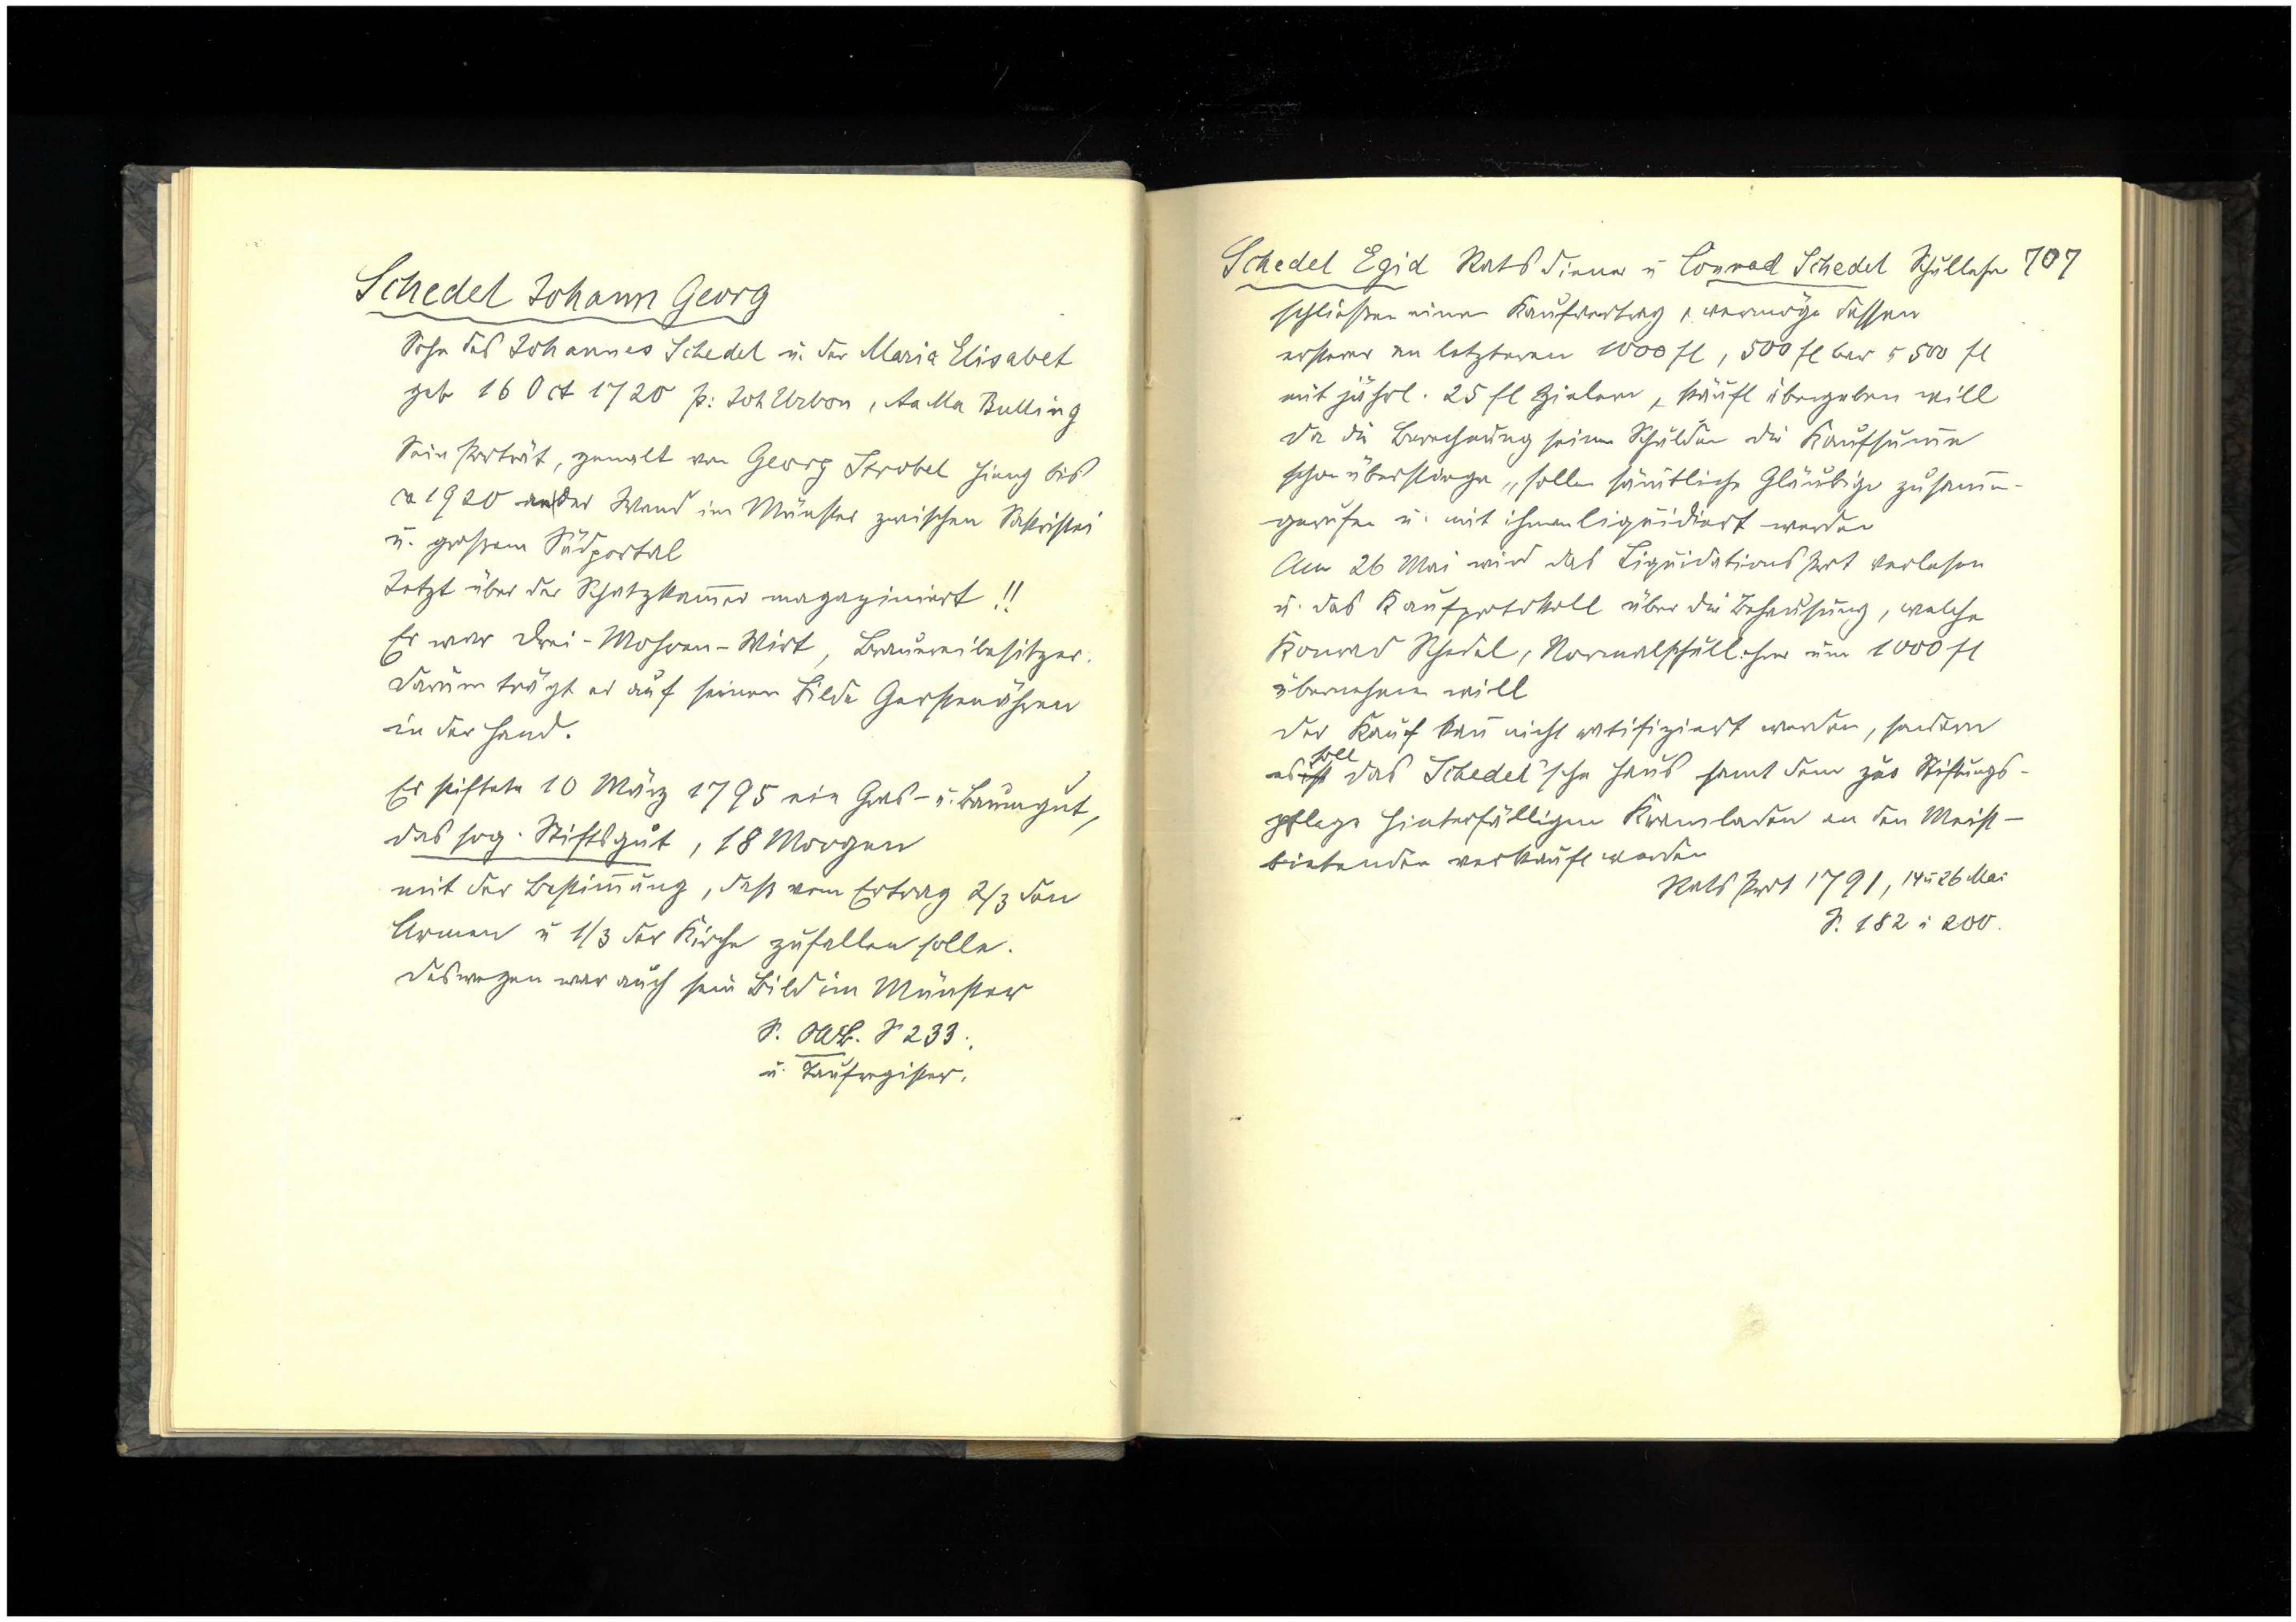 Schedel Johann Georg
Sohn des Johannes Schedel u. der Maria Elisabet
geb 16 Oct 1720 p: Joh Urbon, Aa Ma Bulling
Sein Porträt, gemalt von Georg Strobel hieng bis
ca 1920 an der Wand im Münster zwischen Sakristei
u. großem Südportal
Jetzt über der Schatzkam̅er magaziniert !!
Er war Drei-Mohren-Wirt, Brauereibesitzer.
darum trägt er auf seinem Bilde Gerstenähren
in der Hand.
Er stiftete 10 März 1795 ein Gras- u. Baumgut,
das sog. Stiftsgut, 18 Morgen
mit der Bestim̅ung, daß vom Ertrag 2/3 den
Armen u 1/3 der Kirche zufallen solle.
deswegen war auch sein Bild im Münster
S. S 233.
u. Taufregister.
Schedel Egid Rats diener u Conrad Schedel Schullehr 707
schließen einen Kaufvertrag, vermöge dessen
ersterer an letzteren 1000 fl, 500 fl bar u 500 fl
mit jährl. 25 fl Zielern, käufl übergeben will
da die Berechnung seiner Schulden die Kaufsum̅e
schon übersteige, sollen sämtliche Gläubige zusam̅en-
gerufen u. mit ihnen liquidiert werden
Am 26 Mai wird das Liquidations Prot verlesen
u. das Kaufprotokoll über die Behausung, welche
Konrad Schedel, Normalschullehrer um 1000 fl
übernehmen will
der Kauf kan̅ nicht ratifiziert werden, sondern
es soll das Schedel'sche Haus samt dem zur Stiftungs-
pflege hinterfälligen Kramladen an den Meist-
bietenden verkauft werden
Rats Prot 1791, 14 u 26 Mai
S. 182 u 200.